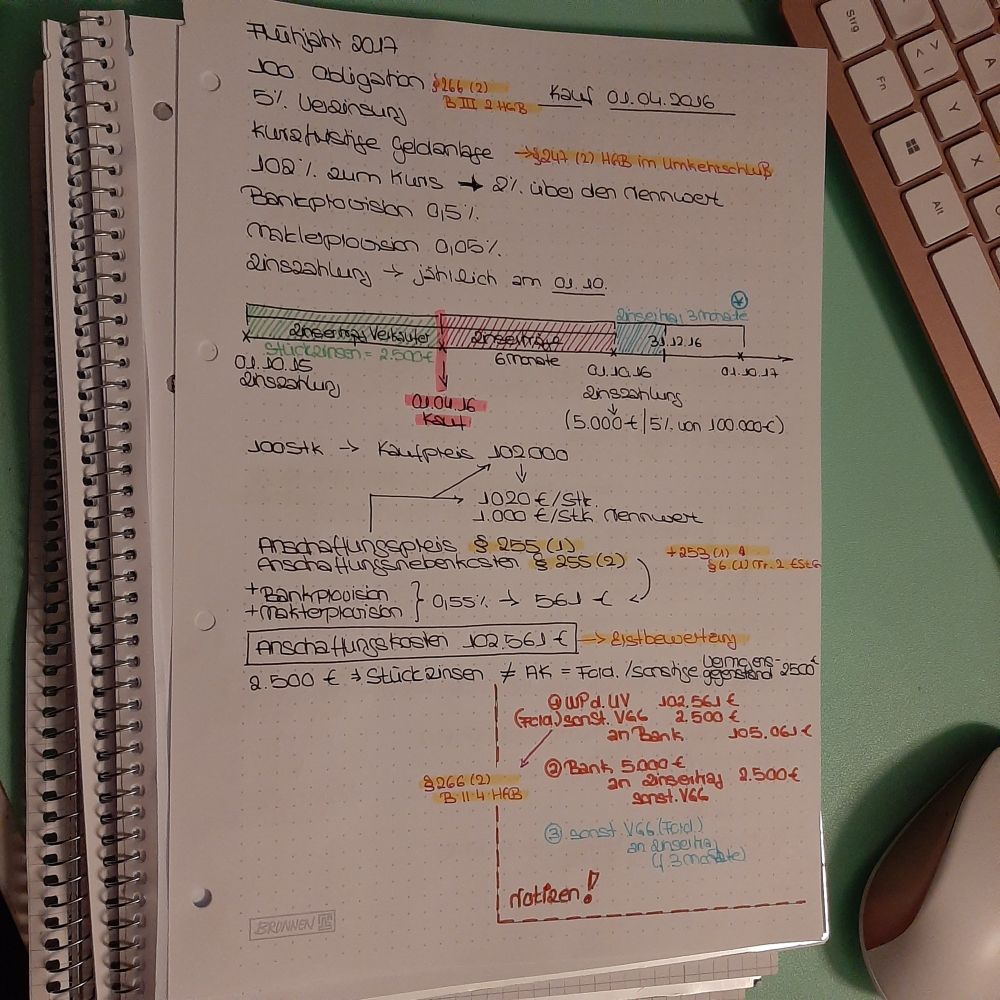 Frühjahr 2017
100 Obligation §266 (2)
B III 2 HGB
Kauf 01.04.2016
5% Verzinsung
Kurzfristige Geldanlage → §247 (2) HGB im Umkehrschluß
102% zum Kurs → 2% über den Nennwert
Bankprovision 0,5%
Maklerprovision 0,05%
Zinszahlung → jährlich am 01.10.
Zinsertrag 3 Monate
Zinsertrag Verkäufer
Zinserträge
31.12.16
Stückzinsen = 2.500 €
6 Monate
01.10.15
Zinszahlung
01.10.16
Zinszahlung
01.10.17
01.04.16
Kauf
(5.000 € | 5% von 100.000 €)
100 Stk → Kaufpreis 102000
1020 €/Stk.
1.000 €/Stk Nennwert
Anschaffungspreis § 255 (1)
Anschaffungsnebenkosten § 255 (2)
+ 253 (1)
§6 (1) Nr. 2 EStG
+ Bankprovision
+ Maklerprovision } 0,55% → 561 €
Anschaffungskosten 102.561 € → Erstbewertung
2.500 € → Stückzinsen ≠ AK = Ford. / sonstige Vermögens-
gegenstand 2500 €
① WP d. UV 102.561 €
(Ford.) sonst. VGG 2.500 €
an Bank 105.061 €
§266 (2)
B II 4 HGB
② Bank 5.000 €
an Zinsertrag 2.500 €
sonst. VGG
③ sonst. VGG (Ford.)
an Zinsertrag
(f. 3 Monate)
Notizen!
BRUNNEN
Strg
Fn
Alt
Y
X
A
<
>
|